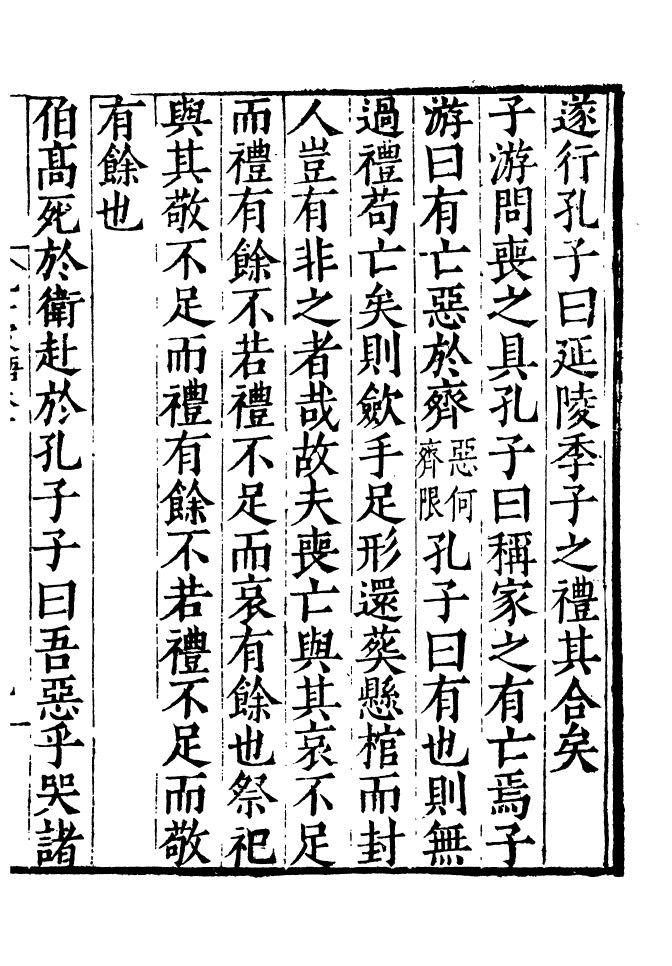 遂行孔子曰延陵季子之禮其合矣
子游問喪之具孔子曰稱家之有亡焉子
游曰有亡惡於齊惡何齊限孔子曰有也則無
過禮苟亡矣則斂手足形還葬懸棺而封
人豈有非之者哉故夫喪亡與其哀不足
而禮有餘不若禮不足而哀有餘也祭祀
與其敬不足而禮有餘不若禮不足而敬
有餘也
伯高死於衛赴於孔子子曰吾惡乎哭諸